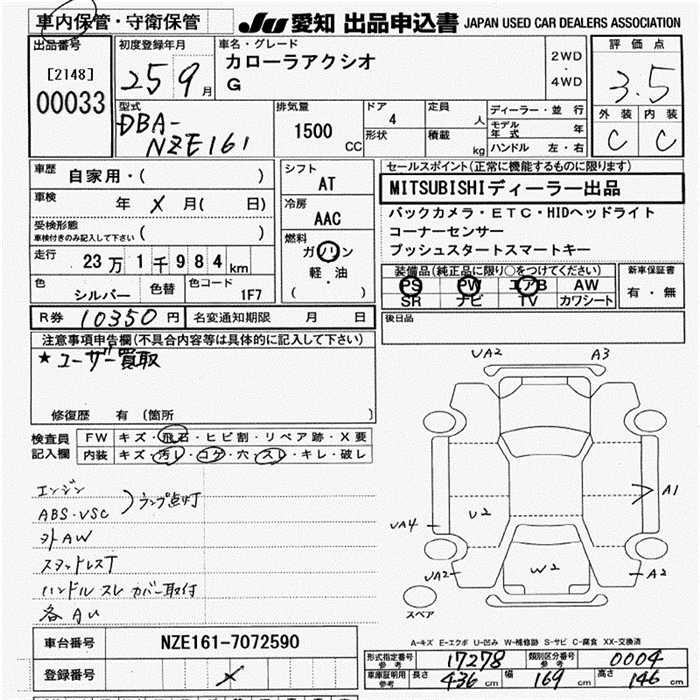 車内保管・守衛保管
JU 愛知 出品申込書 JAPAN USED CAR DEALERS ASSOCIATION
出品番号
[2148]
00033
初度登録年月
25 9月
車名・グレード
カローラアクシオ
G
2WD
・
4WD
評価点
3.5
外装 内装
C C
型式
DBA-
NZE161
排気量
1500 CC
ドア
4
形状
定員
人
積載
kg
ディーラー・並 行
モデル年式 年
ハンドル 左・右
車歴 自家用・( )
車検 年 メ 月( 日)
受検形態
車検付きのみ記入して下さい ( )
走行 23万1千984km
色 シルバー 色替 色コード 1F7
シフト
AT
冷房
AAC
燃料
ガソリン
軽・油
( )
セールスポイント(正常に機能するものに限ります)
MITSUBISHIディーラー出品
バックカメラ・ETC・HIDヘッドライト
コーナーセンサー
プッシュスタートスマートキー
装備品(純正品に限り○をつけてください)
PS PW エアB AW
SR ナビ TV カワシート
新車保証書
有・無
R券 10350円 名変通知期限 月 日
後日品
注意事項申告欄(不具合内容等は具体的に記入して下さい)
★ユーザー買取
修復歴 有 (箇所 )
検査員
記入欄
FW キズ・飛石・ヒビ割・リペア跡・X要
内装 キズ・汚レ・コゲ・穴・スレ・キレ・破レ
エンジン
ABS・VSC
)ランプ点灯
外AW
スタッドレスT
ハンドル スレ カバー取付
各AU
UA2 A3
A1
U2
UA4
UA2 W2 A2
スペア
A-キズ E-エクボ U-凹み W-補修跡 S-サビ C-腐食 XX-交換済
車台番号 NZE161-7072590
登録番号 メ
形式指定番号
参考
17278
類別区分番号
参考
0004
車庫証明用
参考
長さ 436cm 幅 169cm 高さ 146cm